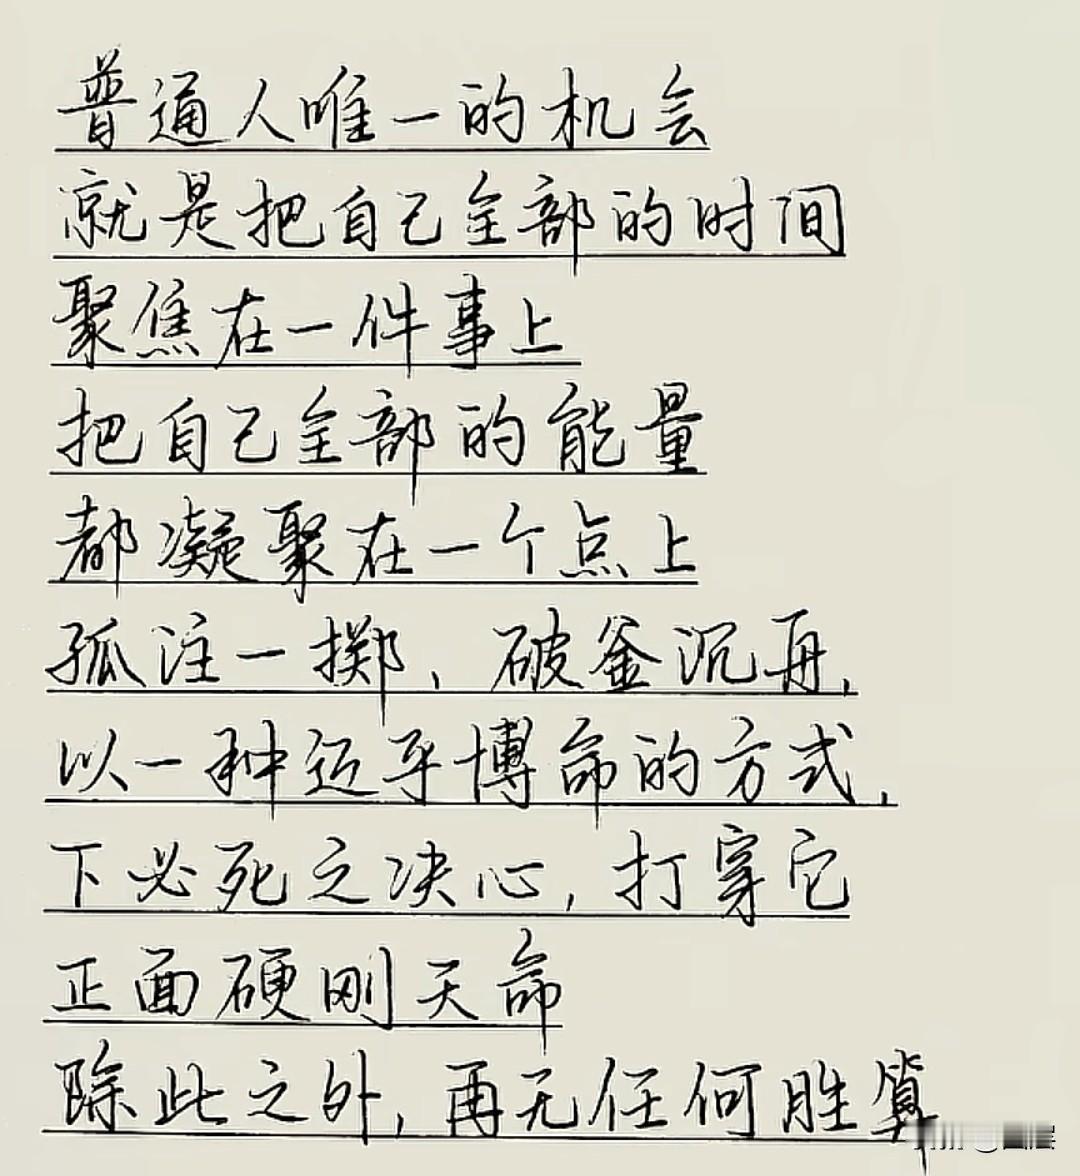 普通人唯一的机会
就是把自己全部的时间
聚焦在一件事上
把自己全部的能量
都凝聚在一个点上
孤注一掷、破釜沉舟,
以一种近乎博命的方式,
下必死之决心,打穿它
正面硬刚天命
除此之外,再无任何胜算